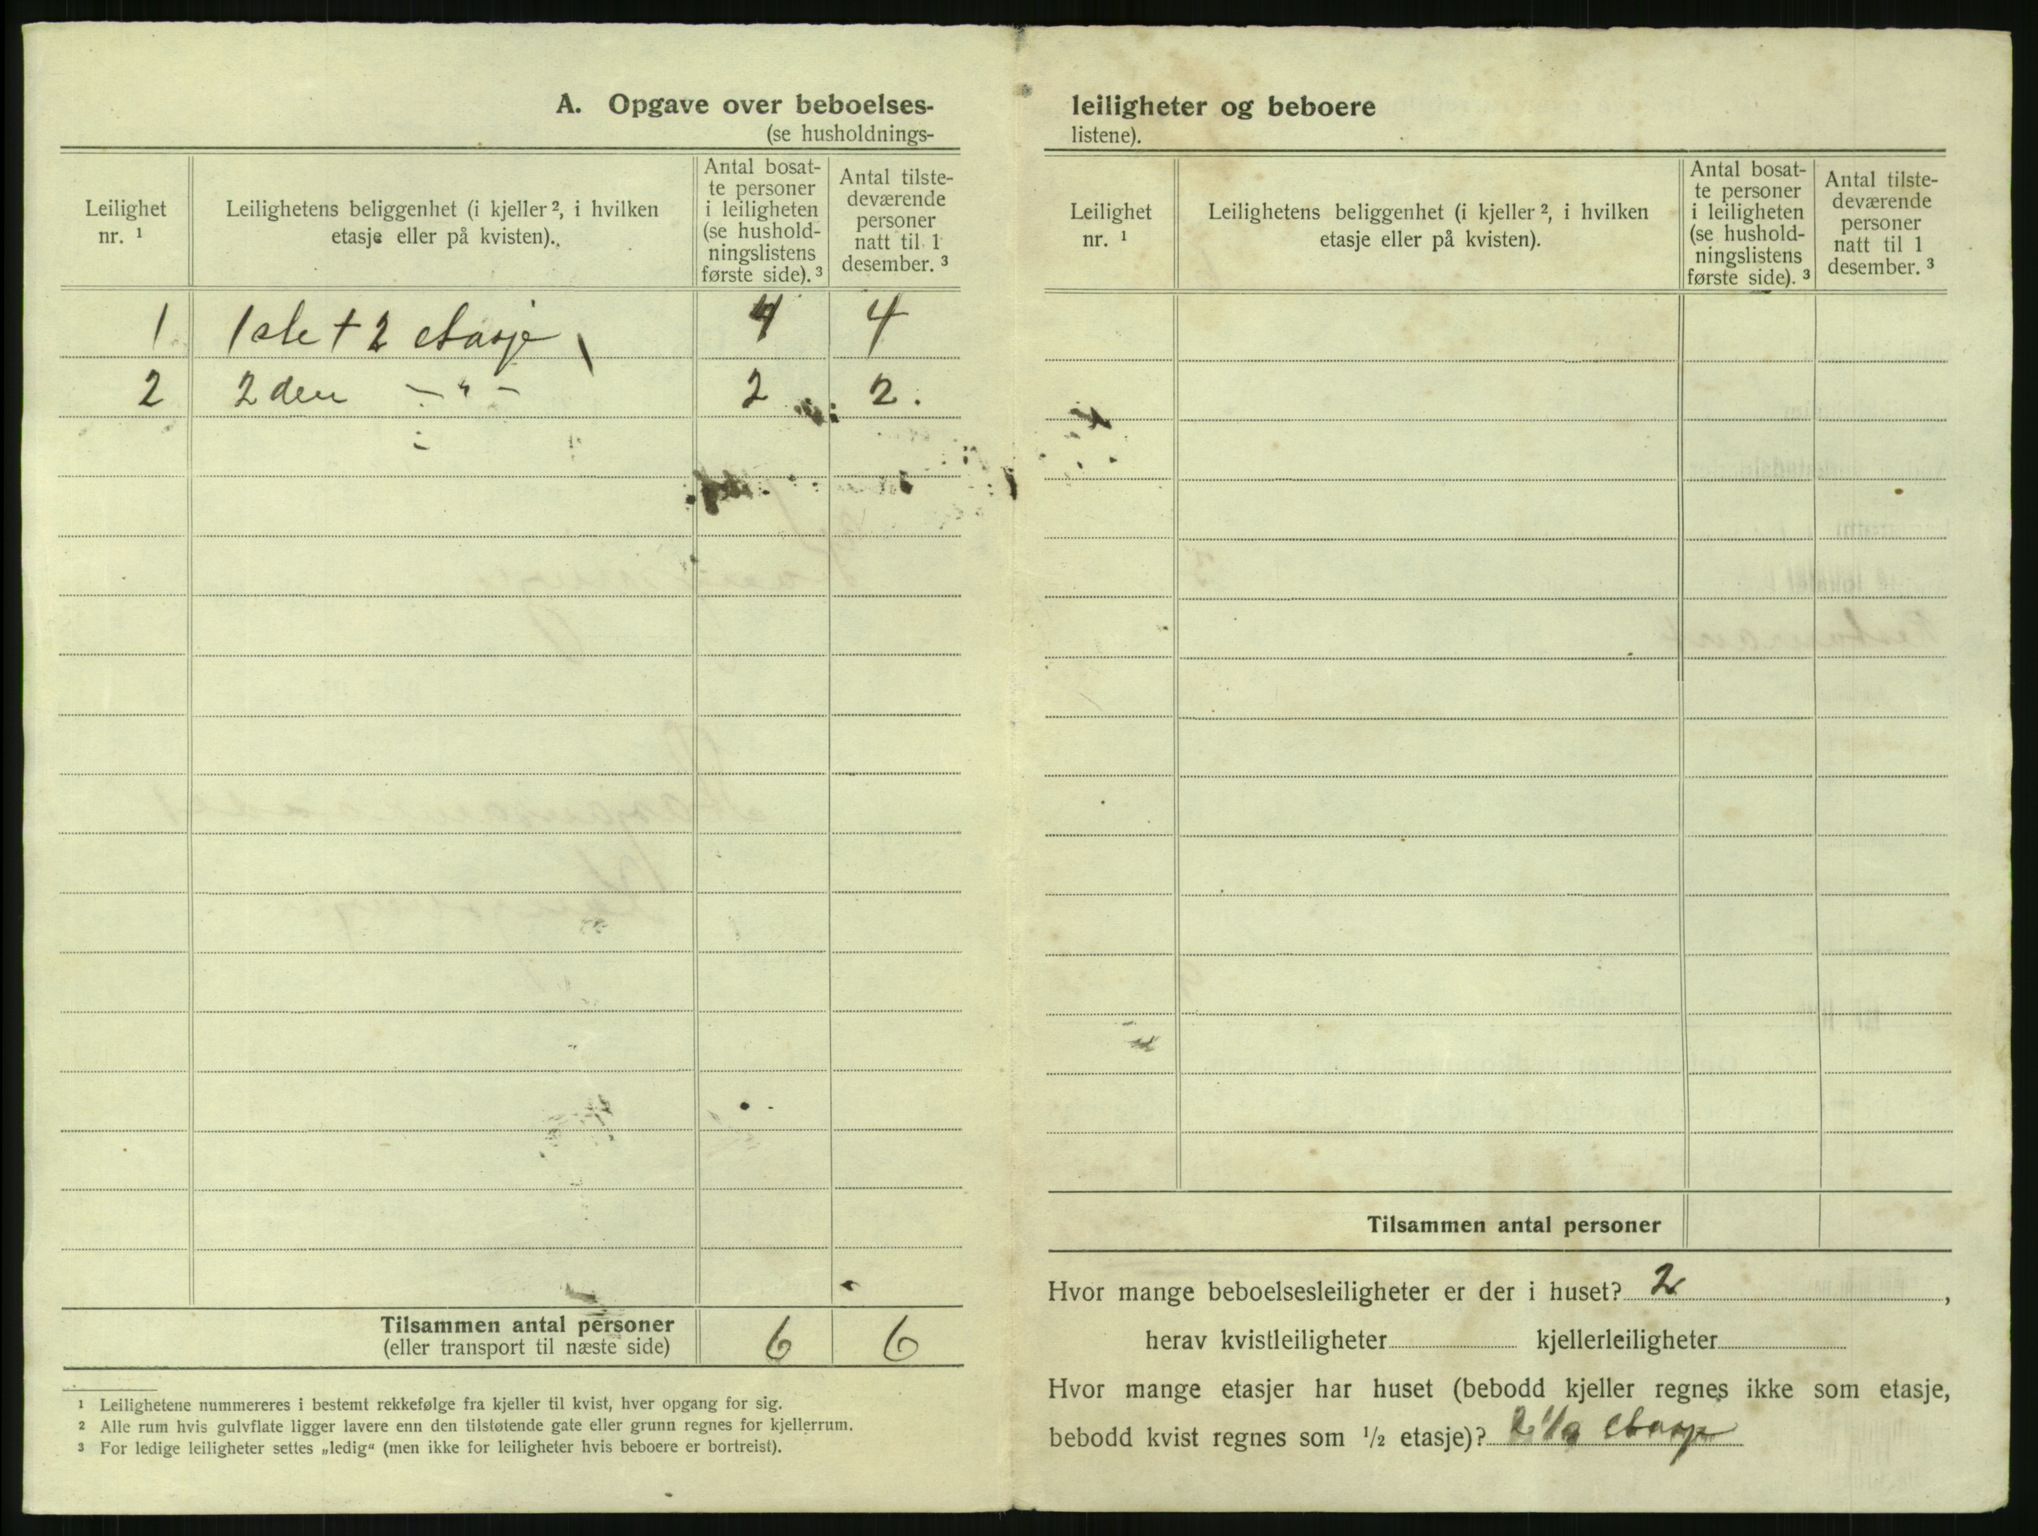 A. Opgave over beboelses-
(se husholdnings-
Leilighet nr. 1
Leilighetens beliggenhet (i kjeller 2, i hvilken
etasje eller på kvisten).
Antal bosat-
te personer
i leiligheten
(se hushold-
ningslistens
første side). 3
Antal tilste-
deværende
personer
natt til 1
desember. 3
1 1ste + 2 etasje 4 4
2 2den — " — 2 2.
Tilsammen antal personer 6 6
(eller transport til næste side)
1 Leilighetene nummereres i bestemt rekkefølge fra kjeller til kvist, hver opgang for sig.
2 Alle rum hvis gulvflate ligger lavere enn den tilstøtende gate eller grunn regnes for kjellerrum.
3 For ledige leiligheter settes „ledig“ (men ikke for leiligheter hvis beboere er bortreist).
leiligheter og beboere
listene).
Leilighet
nr. 1
Leilighetens beliggenhet (i kjeller 2, i hvilken
etasje eller på kvisten).
Antal bosat-
te personer
i leiligheten
(se hushold-
ningslistens
første side). 3
Antal tilste-
deværende
personer
natt til 1
desember. 3
Tilsammen antal personer
Hvor mange beboelsesleiligheter er der i huset? 2,
herav kvistleiligheter kjellerleiligheter
Hvor mange etasjer har huset (bebodd kjeller regnes ikke som etasje,
bebodd kvist regnes som 1/2 etasje)? 2 1/2 etasje